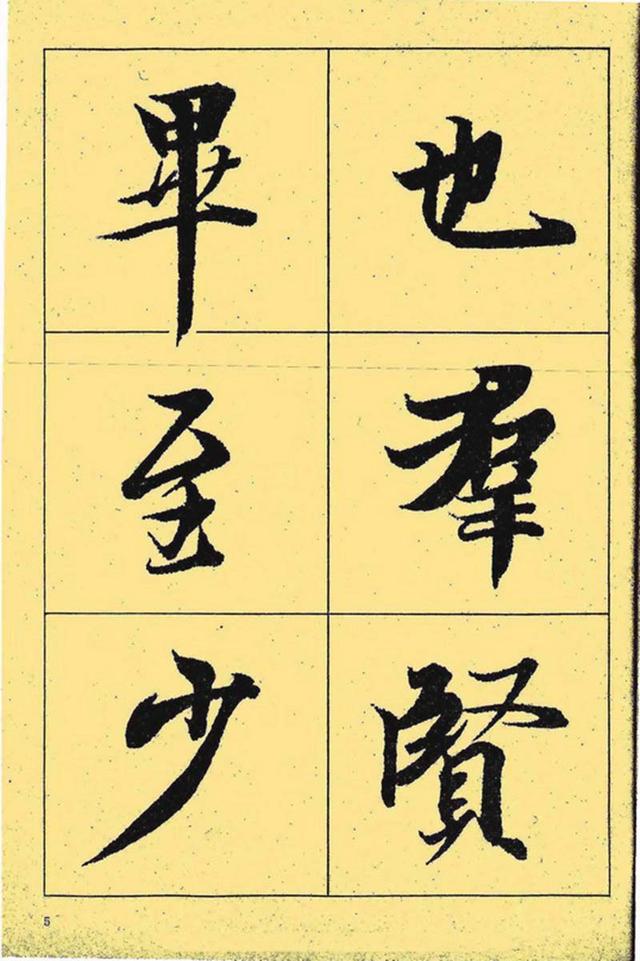 也羣賢
畢至少
5